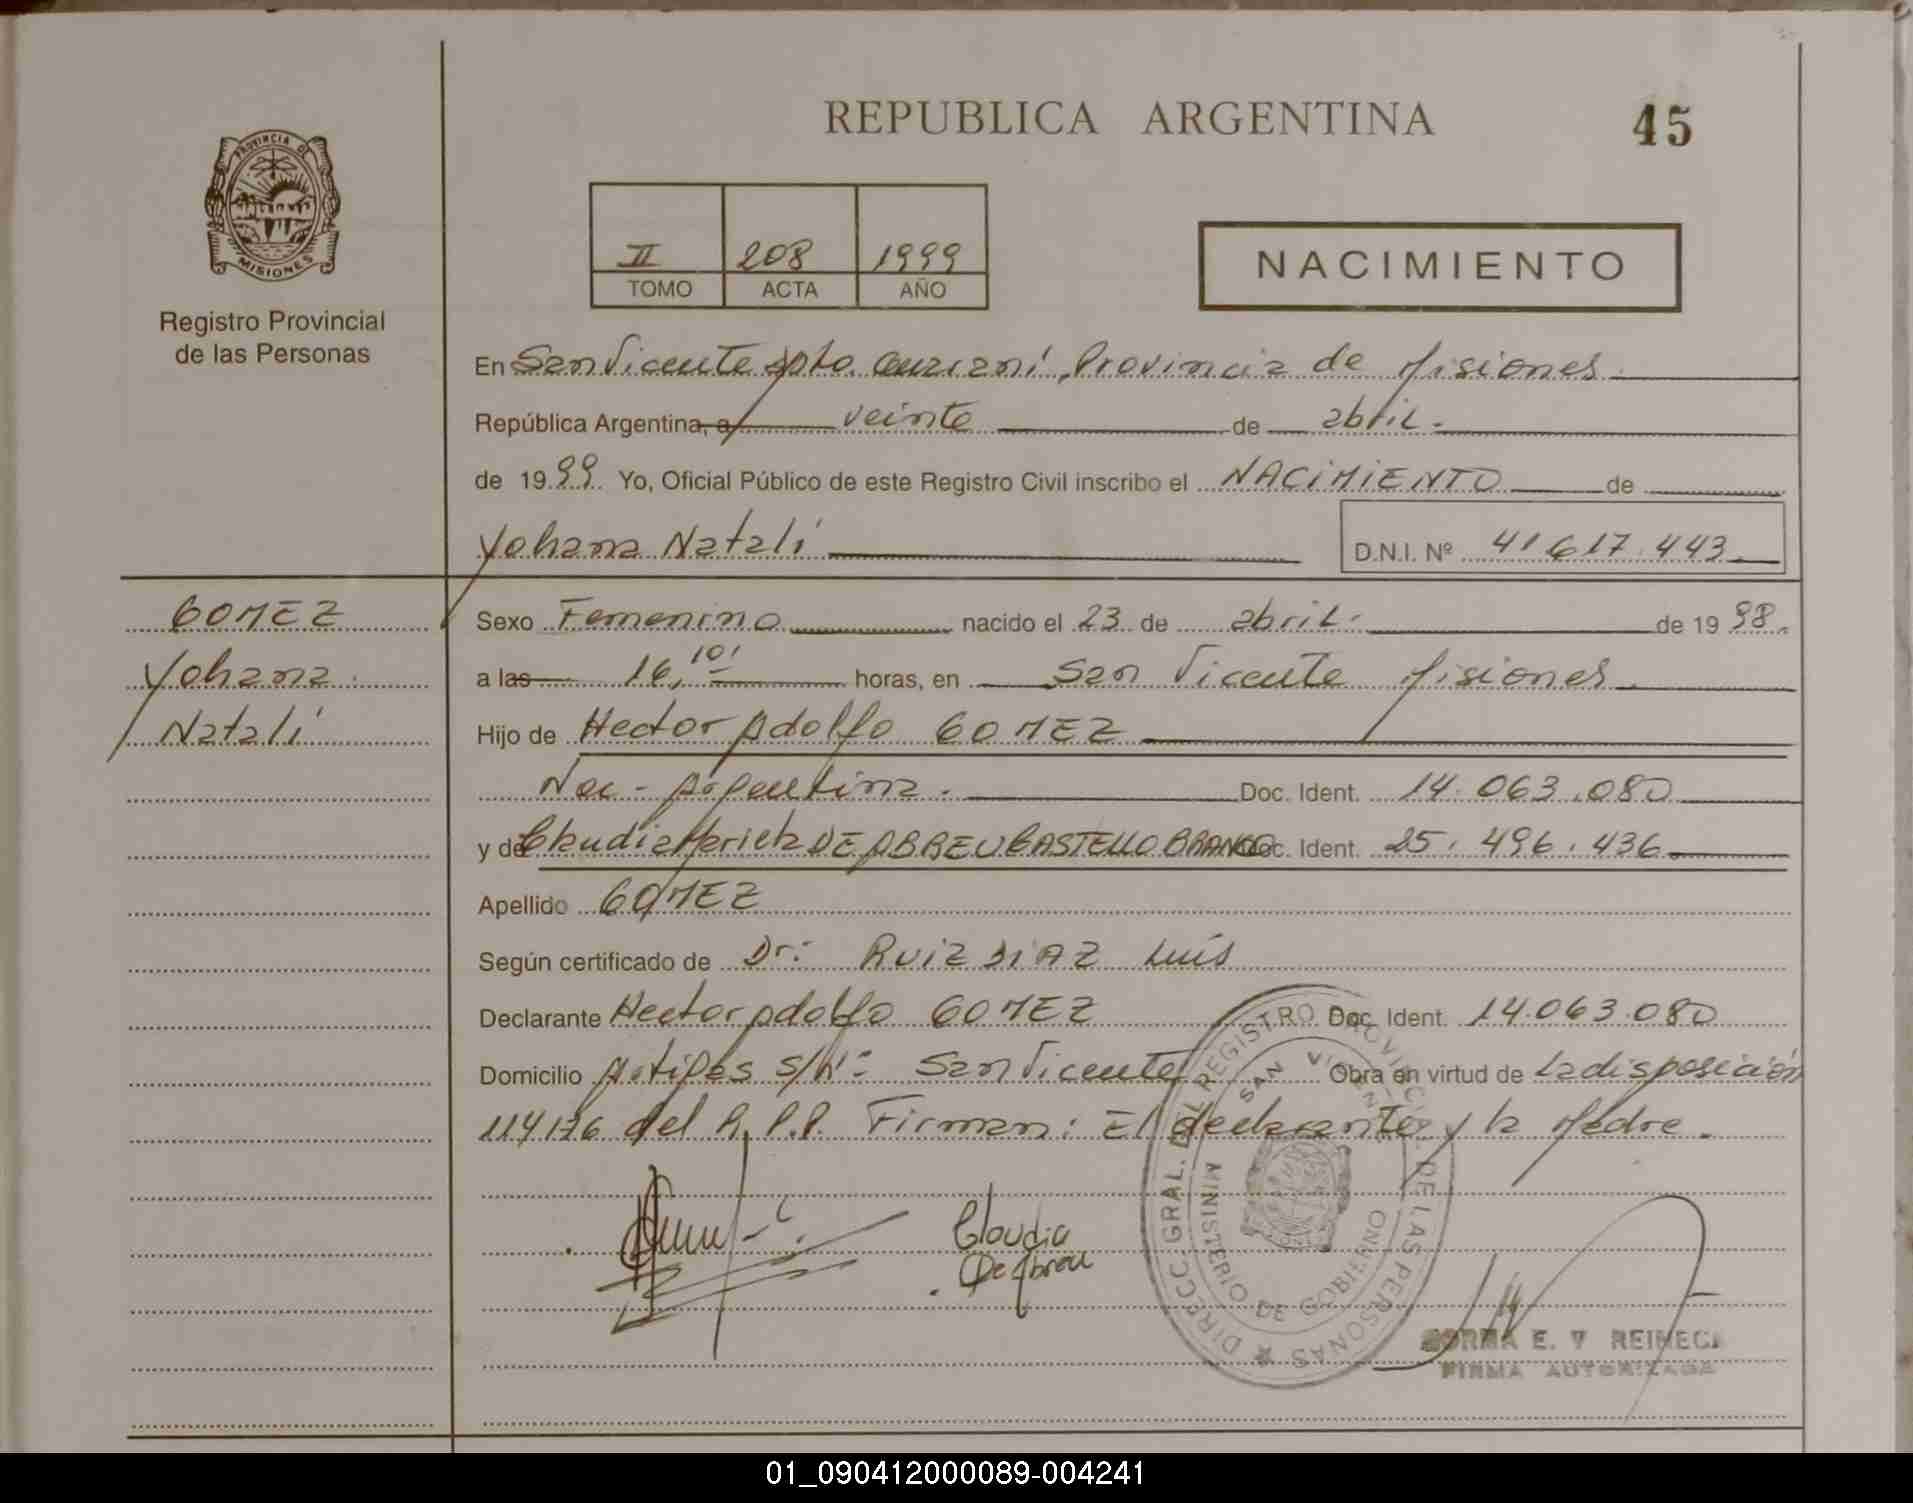 REPUBLICA ARGENTINA
45
PROVINCIA DE
MISIONES
Registro Provincial
de las Personas
II 208 1999
TOMO ACTA AÑO
NACIMIENTO
En San Vicente Dpto. Guaraní, Provincia de Misiones.
República Argentina, a veinte de abril.
de 1999 Yo, Oficial Público de este Registro Civil inscribo el NACIMIENTO de
Yohana Natalí
D.N.I. Nº 41 617.443.
GOMEZ
Yohana
Natalí
Sexo Femenino nacido el 23 de abril. de 1998.
a las 16,10' horas, en San Vicente Misiones.
Hijo de Hector Adolfo GOMEZ
Nac- Argentina. Doc. Ident. 14.063.080
y de Claudia Mariela DE ABREU CASTELLO BRANCO Doc. Ident. 25.496.436.
Apellido GOMEZ
Según certificado de Dr: RUIZ DIAZ Luís
Declarante Hector Adolfo GOMEZ Doc. Ident. 14.063.080
Domicilio s/Nº San Vicente Obra en virtud de La disposición
del R.P.P. Firman: El declarante y la Madre.
Claudia
De Abreu
DIRECC. GRAL. DEL REGISTRO PROVINCIAL DE LAS PERSONAS
SAN VICENTE
MINISTERIO DE GOBIERNO
E. V REINECK
FIRMA AUTORIZADA
01_090412000089-004241